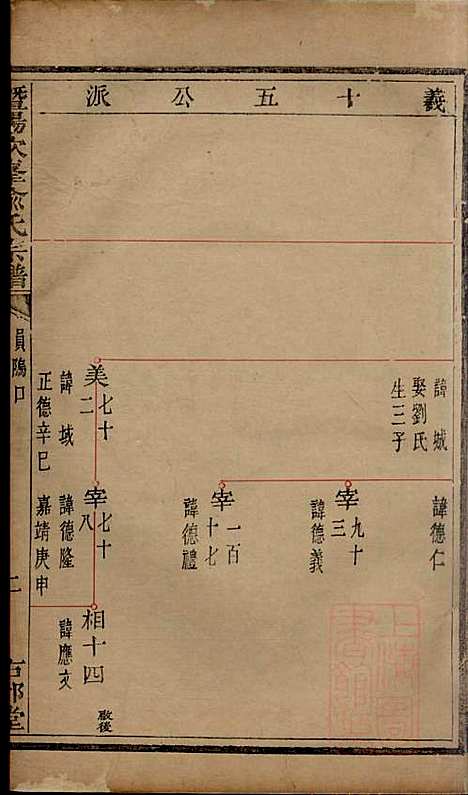 義十五公派
諱城
娶劉氏
生三子
諱德仁
宰九十三
諱德義
宰一百十七
諱德禮
美七十二
諱域
正德辛巳
宰七十八
諱德隆
嘉靖庚申
相十四
諱應文
啟後
暨陽次峯俞氏宗譜
二